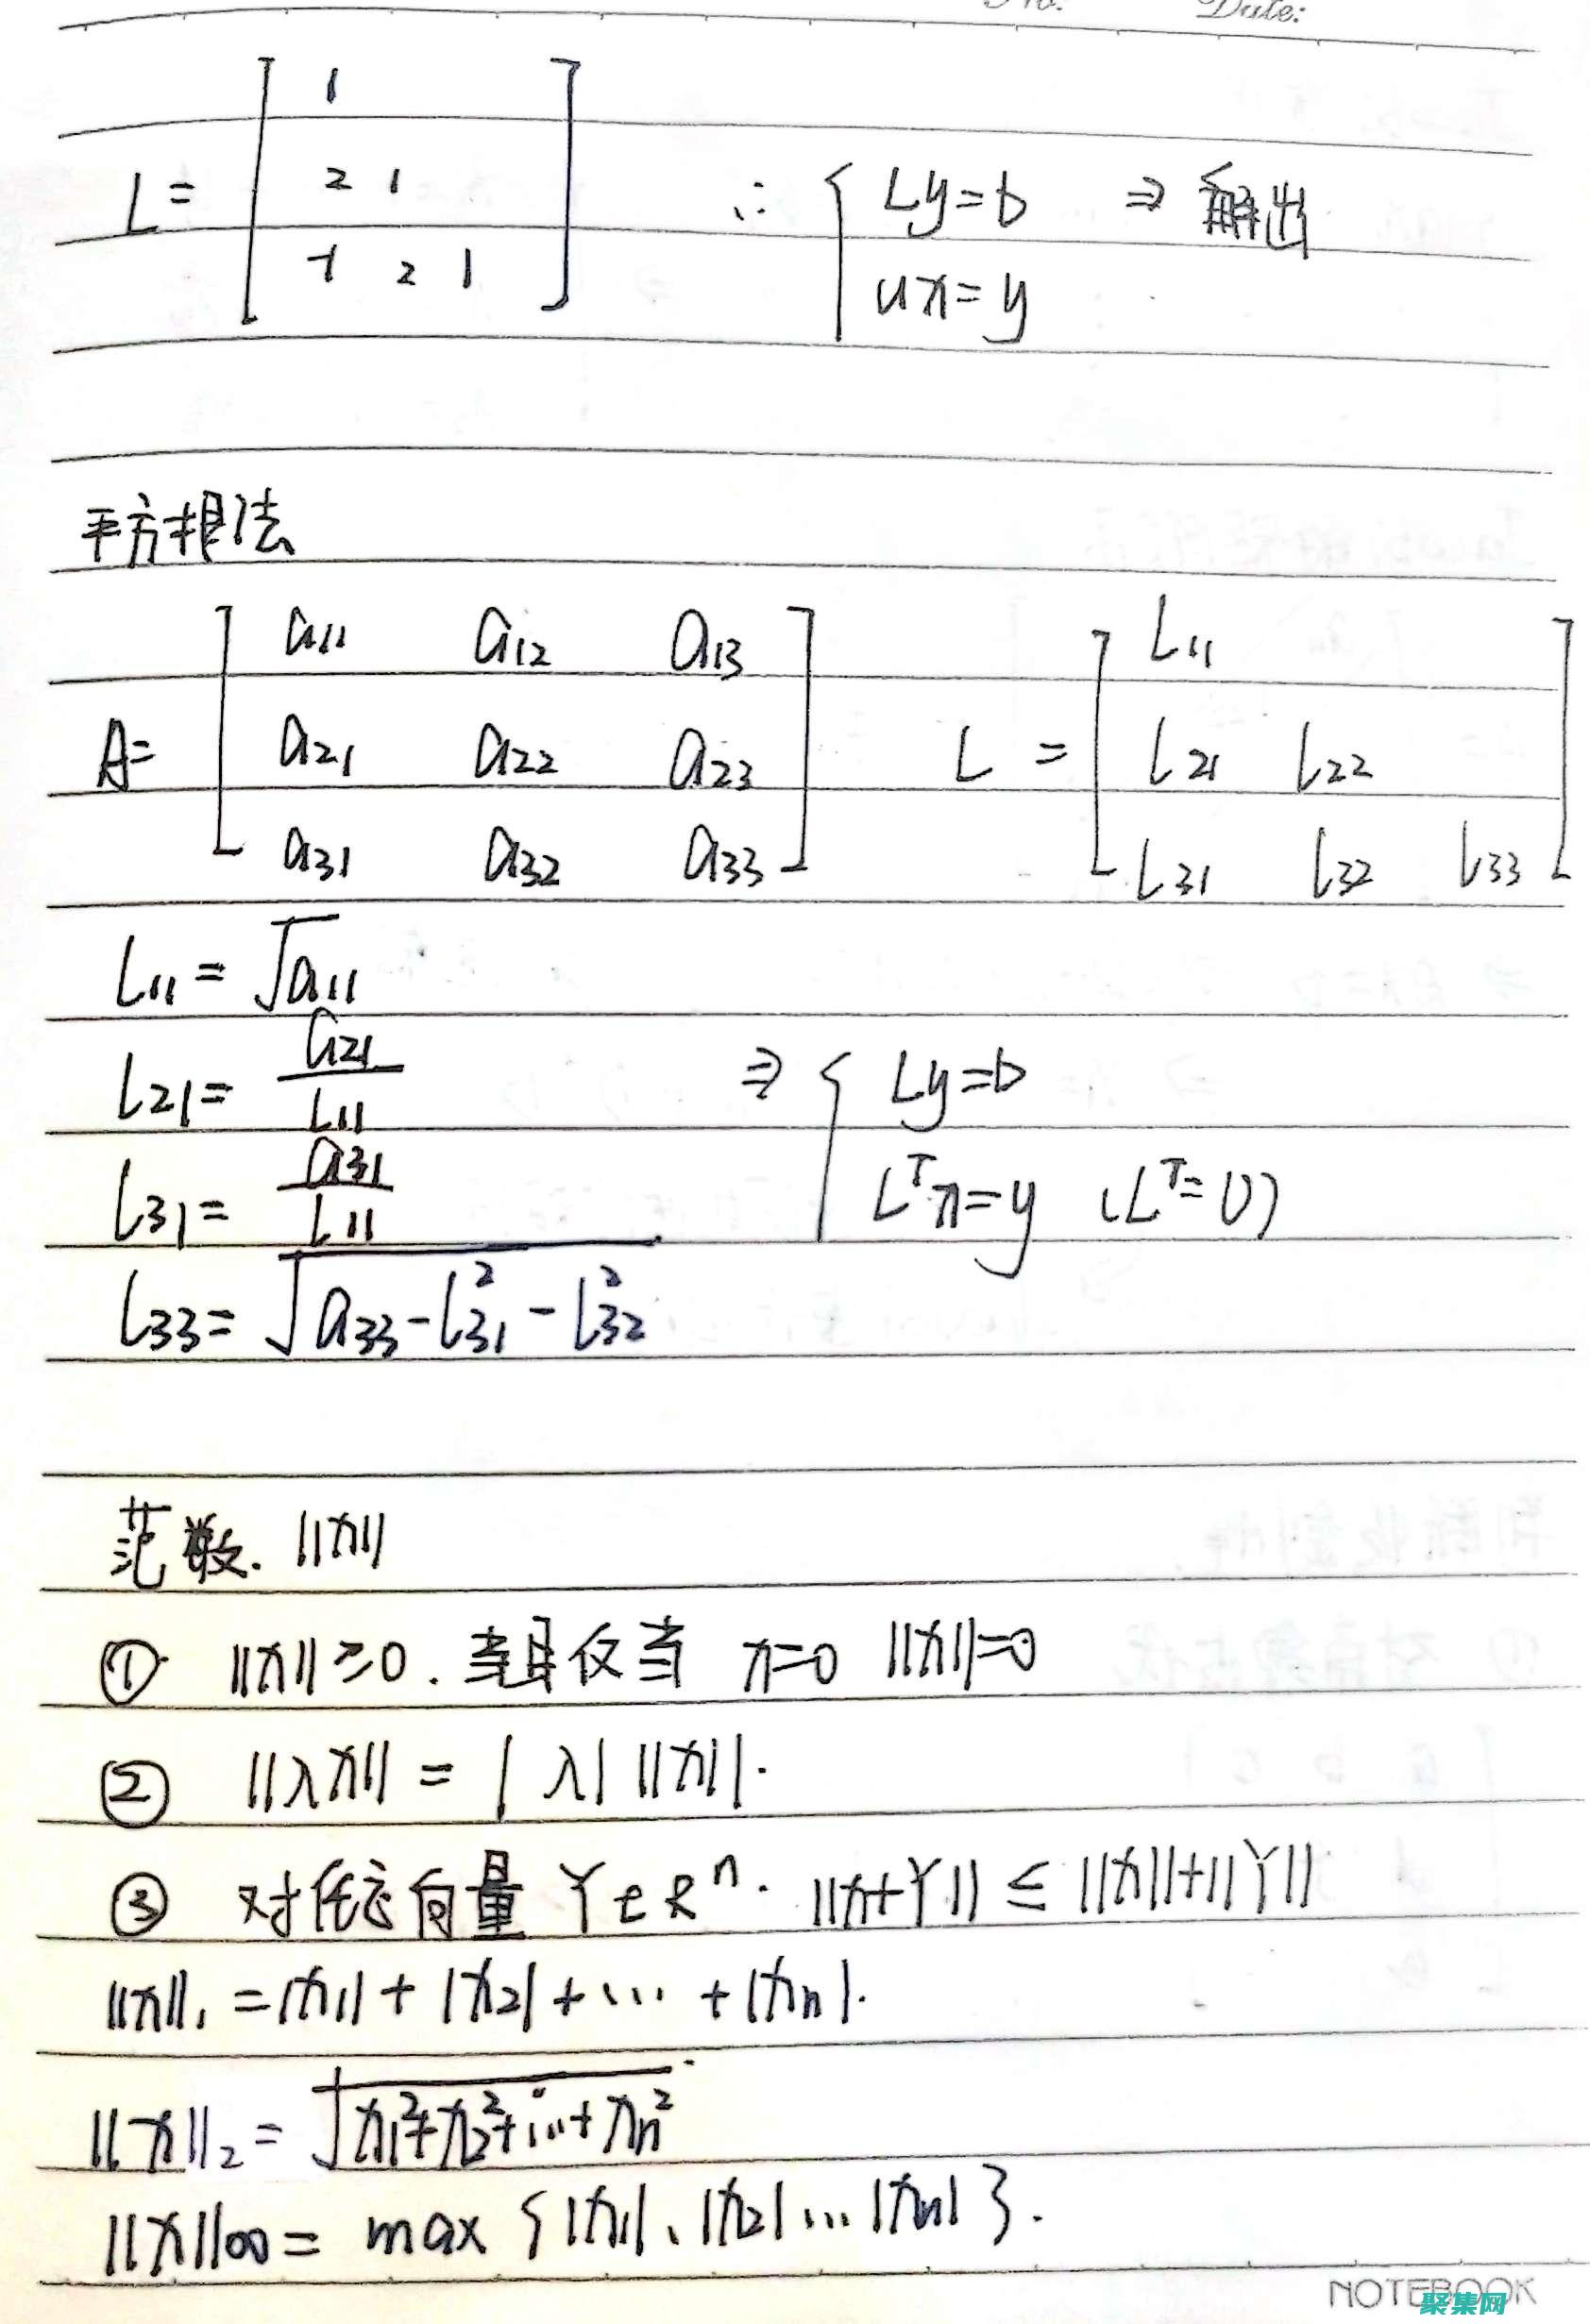 No. Date:
1
L = 2 1
-1 2 1
∴ { Ly=b ⇒ 解出
ux=y
平方根法
a11 a12 a13
A= a21 a22 a23
a31 a32 a33
L11
L = l21 l22
l31 l32 l33
L11 = √a11
l21 = a21/L11
l31 = a31/L11
l33 = √(a33-l31²-l32²)
⇒ { Ly=b
Lᵀx=y (Lᵀ=U)
范数. ||x||
① ||x||≥0. 当且仅当 x=0 ||x||=0
② ||λx|| = |λ| ||x||.
③ 对任意向量 Y∈Rⁿ. ||x+Y|| ≤ ||x||+||Y||
||x||₁ = |x1| + |x2| + ... + |xn|.
||x||₂ = √(x1²+x2²+...+xn²)
||x||∞ = max {|x1|、|x2|...|xn|}.
NOTEBOOK
聚集网